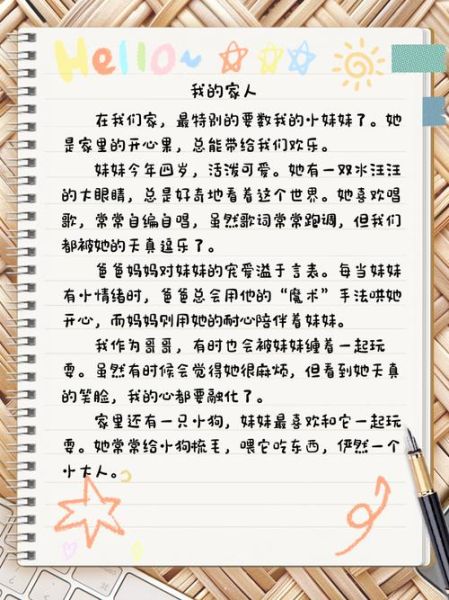 Hello~
我的家人
在我们家，最特别的要数我的小妹妹了。她
是家里的开心果，总能带给我们欢乐。
妹妹今年四岁，活泼可爱。她有一双水汪汪
的大眼睛，总是好奇地看着这个世界。她喜欢唱
歌，常常自编自唱，虽然歌词常常跑调，但我们
都被她的天真逗乐了。
爸爸妈妈对妹妹的宠爱溢于言表。每当妹妹
有小情绪时，爸爸总会用他的“魔术”手法哄她
开心，而妈妈则用她的耐心陪伴着妹妹。
我作为哥哥，有时也会被妹妹缠着一起玩
耍。虽然有时候会觉得她很麻烦，但看到她天真
的笑脸，我的心都要融化了。
家里还有一只小狗，妹妹最喜欢和它一起玩
耍。她常常给小狗梳毛，喂它吃东西，俨然一个
小大人。